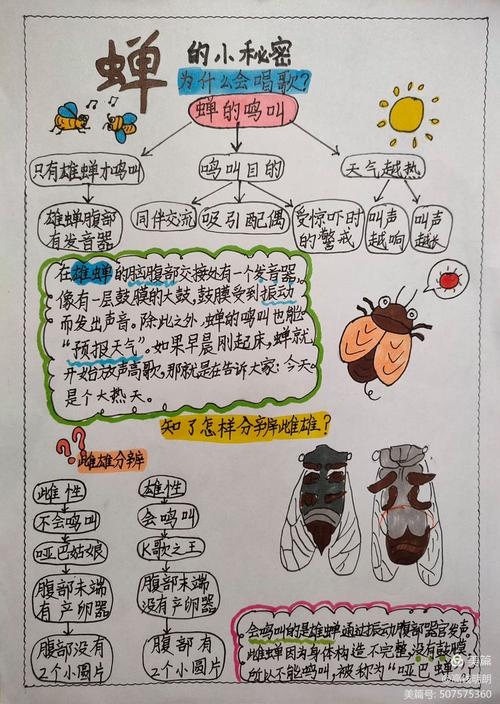 蝉的小秘密
为什么会唱歌?
蝉的鸣叫
只有雄蝉才鸣叫
鸣叫目的
天气越热
雄蝉腹部
有发音器
同伴交流
吸引配偶
受惊吓时
的警戒
叫声
越响
叫声
越长
在雄蝉的胸腹部交接处有一个发音器,
像有一层鼓膜的大鼓,鼓膜受到振动
而发出声音。除此之外,蝉的鸣叫也能
“预报天气”。如果早晨刚起床,蝉就
开始放声高歌,那就是在告诉大家:今天
是个大热天。
知了怎样分辨雌雄?
??
雌雄分辨
雌性
不会鸣叫
哑巴姑娘
腹部末端
有产卵器
腹部没有
2个小圆片
雄性
会鸣叫
K歌之王
腹部末端
没有产卵器
腹部有
2个小圆片
会鸣叫的是雄蝉通过振动腹部器官发声。
雌蝉因为身体构造不完整,没有鼓膜
所以不能鸣叫,被称为“哑巴蝉
美篇
美篇号:507575360